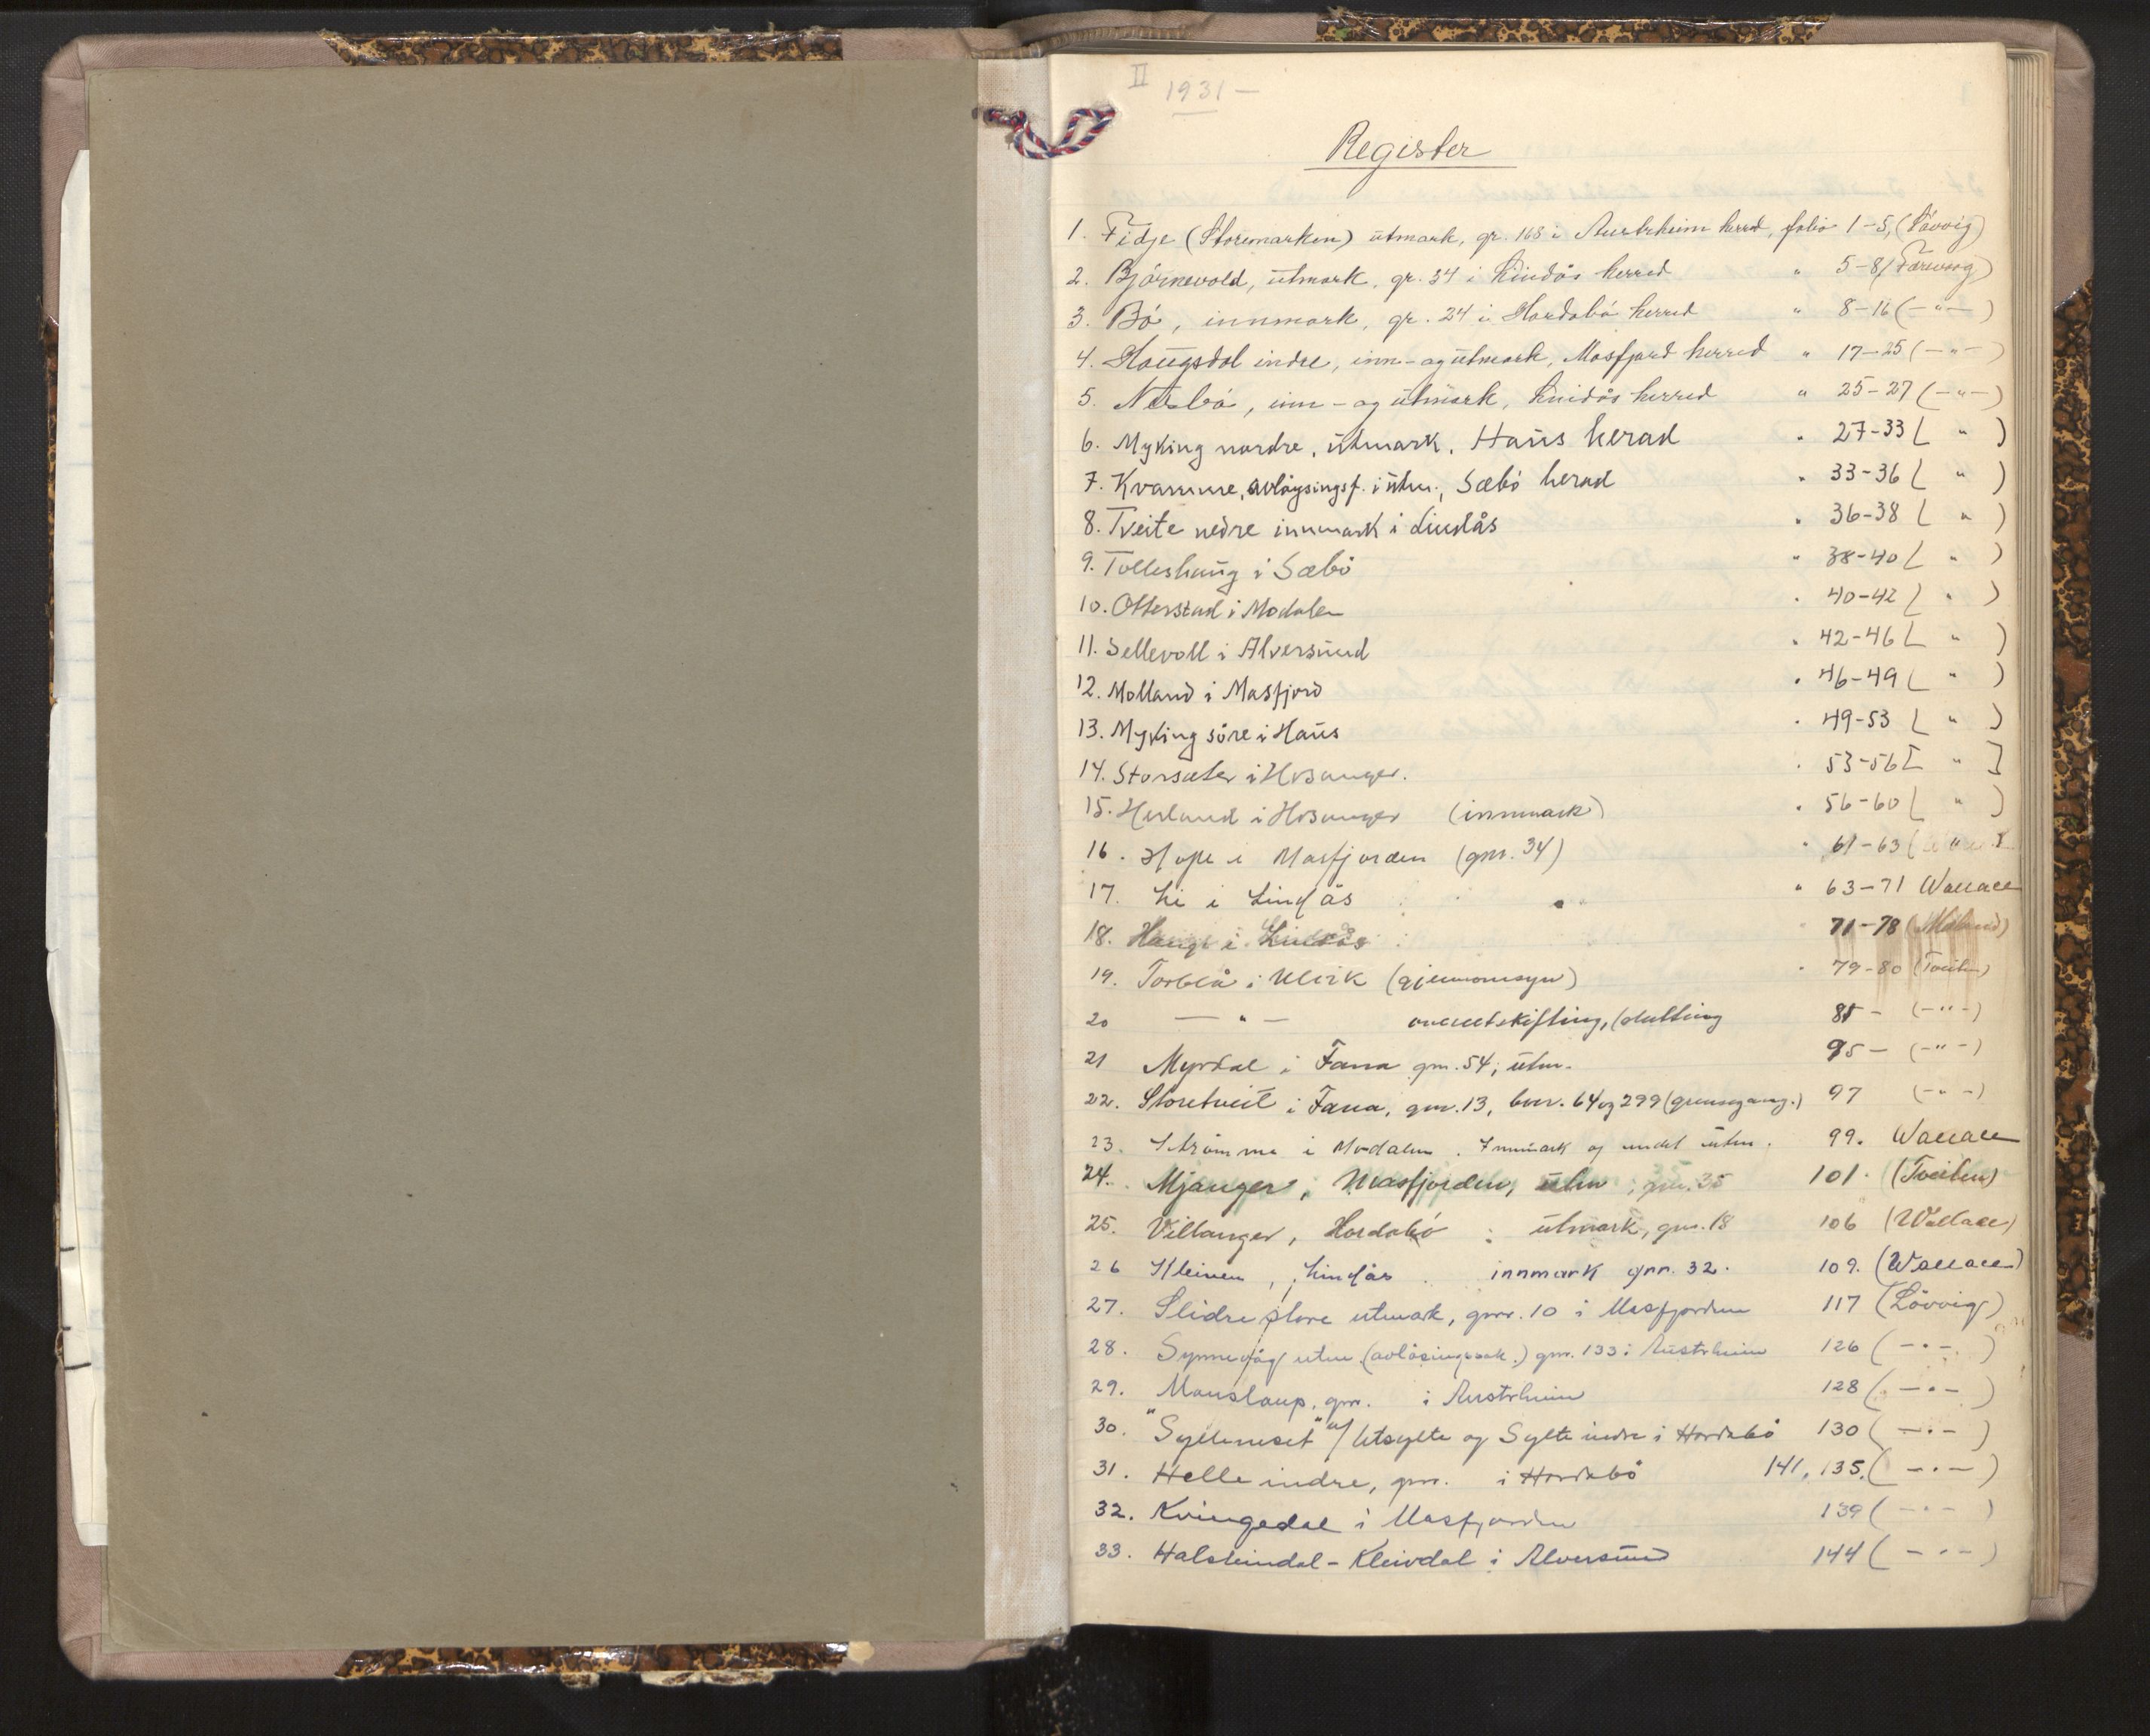 II 1931 —
Register
1. Fidje (Storemarken) utmark, gr. 168 i Austrheim herred, folio 1-5, (Lövvig)
2. Björnevold, utmark, gr. 34 i Lindås herred " 5-8 (Færevaag)
3. Bö, innmark, gr. 24 i Hordabö herred " 8-16 (-"-)
4. Haugsdal indre, inn- og utmark, Masfjord herred " 17-25 (-"-)
5. Nesbö, inn- og utmark, Lindås herred " 25-27 (-"-)
6. Myking nordre, utmark, Haus herad " 27-33 ( " )
7. Kvamme, avløysingsf. i utm., Sæbö herad " 33-36 ( " )
8. Tveite nedre innmark i Lindås " 36-38 ( " )
9. Tolleshaug i Sæbö " 38-40 ( " )
10. Otterstad i Modalen " 40-42 ( " )
11. Sellevoll i Alversund " 42-46 ( " )
12. Molland i Masfjord " 46-49 ( " )
13. Myking söre i Haus " 49-53 ( " )
14. Storsæter i Hosanger. " 53-56 [ " ]
15. Herland i Hosanger (innmark) " 56-60 ( " )
16. Hope i Masfjorden (gnr. 34) " 61-63
17. Li i Lindås " 63-71 Wallace
18. Hauge i Lindås " 71-78
19. Torblå i Ulvik (gjennomsyn) " 79-80 (Tveiten)
20 — " — overutskifting, (slutting 85 - (-"-)
21 Myrdal i Fana gnr. 54, utm. 95 - (-"-)
22. Storetveit i Fana, gnr. 13, bnr. 64 og 299 (grensegang.) 97 (-"-)
23. Strömme i Modalen. Innmark og undel utm. 99. Wallace
24. Mjanger, Masfjorden, utm, gnr. 35 101. (Tveiten)
25. Villanger, Hordabö : utmark, gnr. 18 106 (Wallace)
26 Kleiven, Lindås innmark gnr. 32. 109. (Wallace)
27. Slidre store utmark, gnr. 10 i Masfjorden 117 (Lövvig)
28. Synnevåg utm. (avlösingssak.) gnr. 133 i Austrheim 126 (-"-)
29. Monslaup, gnr. i Austrheim 128 (-"-)
30. "Sylteneset" u/ Utsylte og Sylte indre i Hordabö 130 (-"-)
31. Helle indre, gnr. i Hordabö 141, 135, (-"-)
32. Kvingedal i Masfjorden 139 (-"-)
33. Halsteindal - Kleivdal i Alversund 144 (-"-)